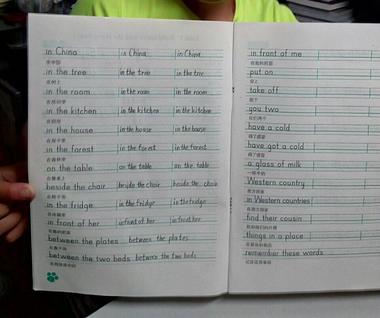 in China in China in China
在中国
in the tree in the tree in the tree
在树上
in the room in the room in the room
in the kitchen in the kitchen in the kitchen
in the house in the house in the house
in the forest in the forest in the forest
在森林里
on the table on the table on the table
beside the chair beside the chair beside the chair
in the fridge in the fridge in the fridge
in front of her in front of her in front of her
between the plates between the plates
between the two beds between the two beds
in front of me
put on
穿上
take off
脱下
you two
你们两个
have a cold
得了感冒
have got a cold
得了感冒
a glass of milk
一杯牛奶
Western country
西方国家
in Western countries
在西方国家
find their cousin
things in a place
remember these words
记住这些单词